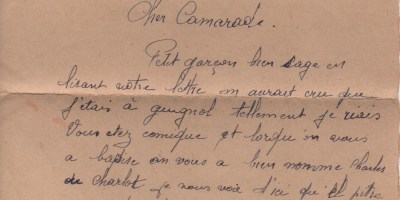 Cher Camarade.
Petit garçon bien sage en
lisant votre lettre on aurait cru que
j'étais à guignol tellement je riais
Vous etez comique et lorqu'on vous
a baptise on vous a bien nomme Charles
du charlot je vous voie d'ici qu'el pitre